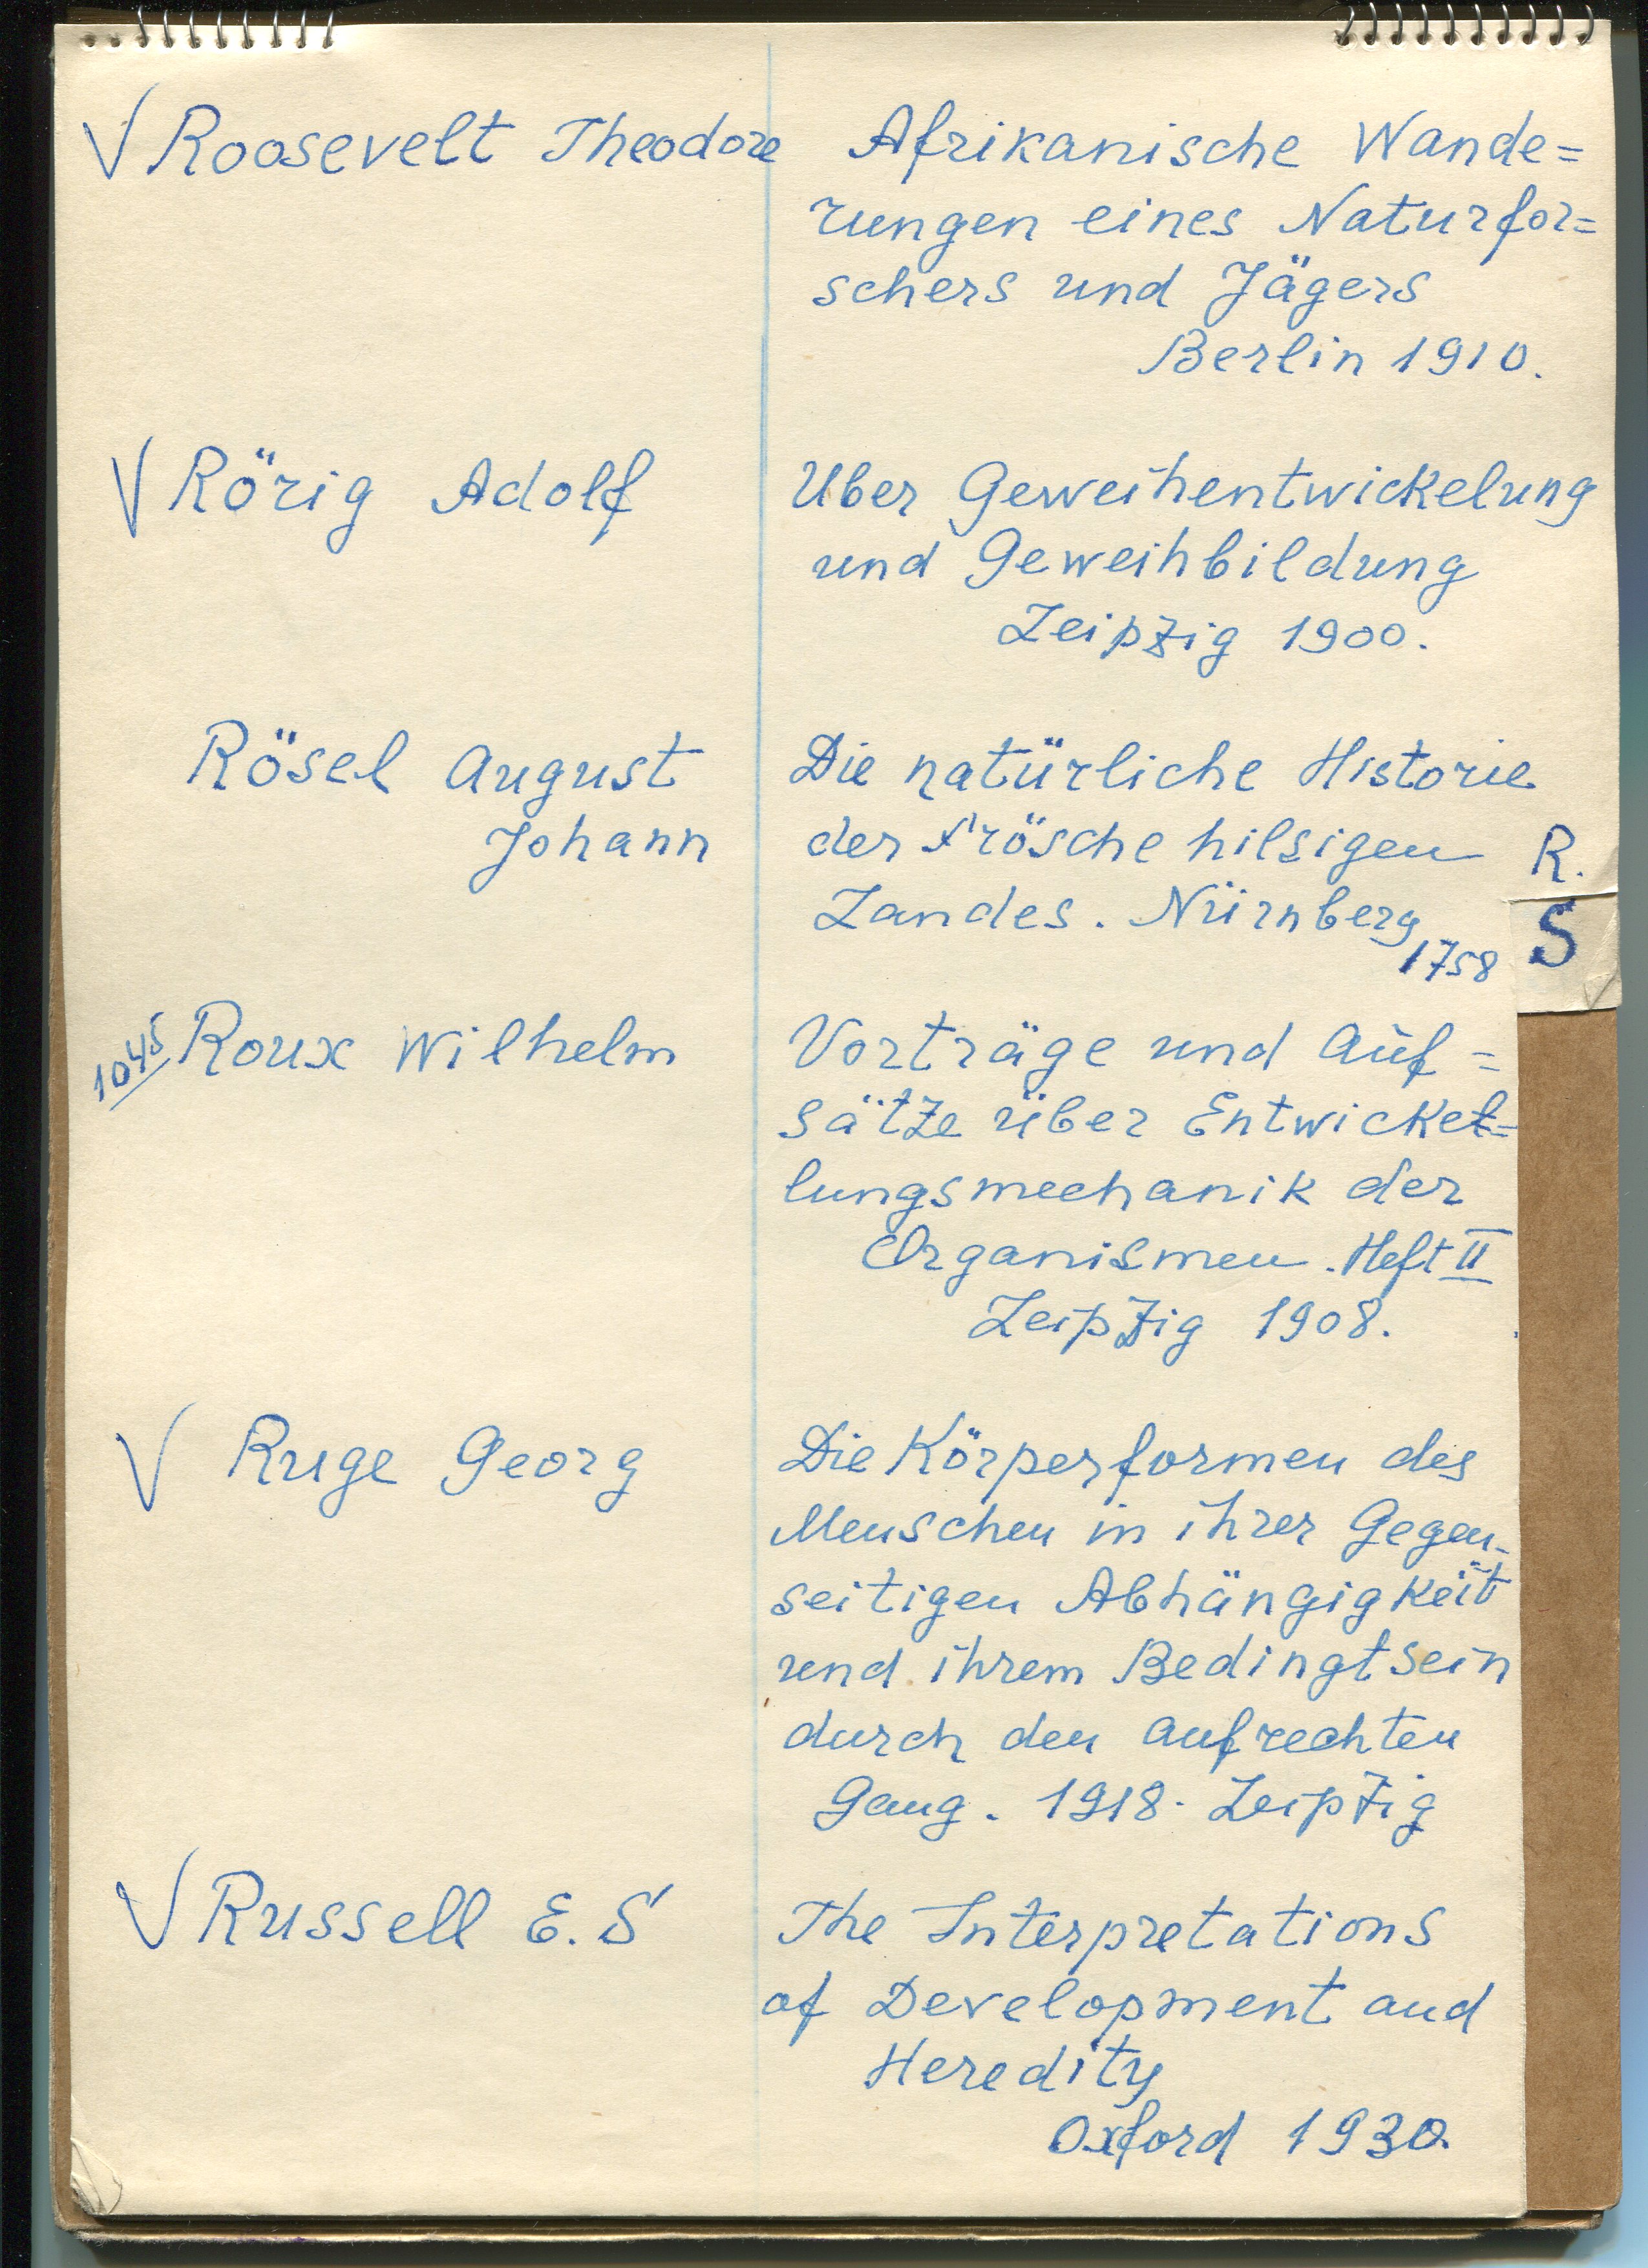 √ Roosevelt Theodore Afrikanische Wande=
rungen eines Naturfor=
schers und Jägers
Berlin 1910.
√ Rörig Adolf Über Geweihentwickelung
und Geweihbildung
Leipzig 1900.
Rösel August Die natürliche Historie
Johann der Frösche hilsigen
Landes. Nürnberg
1758
R.
S
1045 Roux Wilhelm Vorträge und Auf=
sätze über Entwickel=
lungsmechanik der
Organismen. Heft II
Leipzig 1908.
√ Ruge Georg Die Körperformen des
Menschen in ihrer Gegen-
seitigen Abhängigkeit
und ihrem Bedingtsein
durch den aufrechten
Gang. 1918. Leipzig
√ Russell E. S The Interpretations
of Development and
Heredity
Oxford 1930.